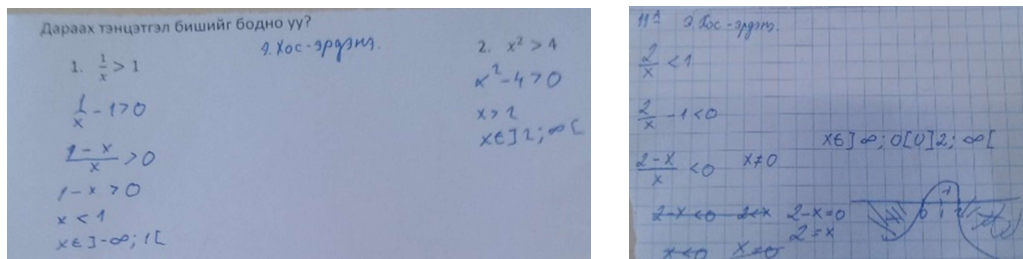 Дараах тэнцэтгэл бишийг бодно уу?
Э. Хос-эрдэнэ.
1. 1/x > 1
1/x - 1 > 0
1-x/x > 0
1-x > 0
x < 1
x∈]-∞; 1[
2. x² > 4
x² - 4 > 0
x > 2
x∈]2; ∞[
11ª Э. Хос-эрдэнэ.
2/x < 1
2/x - 1 < 0
x∈]∞; 0[∪]2; ∞[
2-x/x < 0 x≠0
2-x<0 2<x 2-x=0
2=x
x<0 x=0
0 1 2